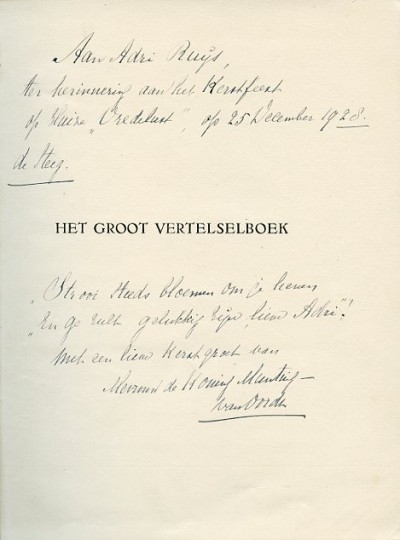 Aan Adri Ruijs,
ter herinnering aan het Kerstfeest
op Huize „Vredelust”, op 25 December 1928.
de Steeg.
HET GROOT VERTELSELBOEK
„Strooi steeds bloemen om je henen
„En ge zult gelukkig zijn, lieve Adri”!
Met een lieve Kerstgroet van
Mevrouw de Koning Munting –
van Oordt